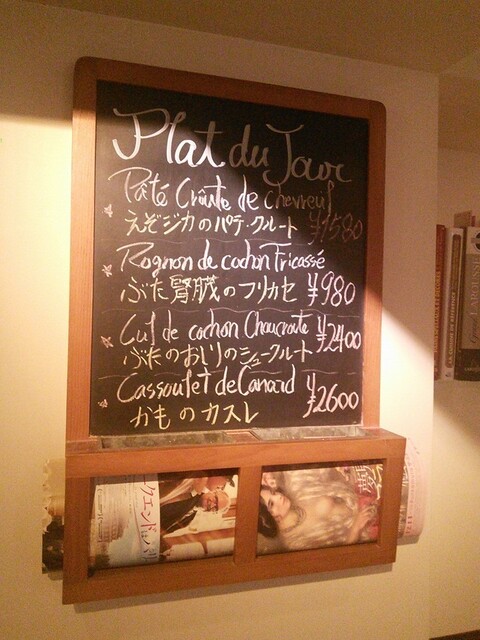 Plat du Jour
Pâté Croûte de chevreuil
えぞジカのパテ・クルート ¥1580
Rognon de cochon Fricassé
ぶた腎臓のフリカセ ¥980
Cul de cochon Choucroute ¥2400
ぶたのおしりのシュークルート
Cassoulet de Canard
かものカスレ ¥2600
クエンドはパリ
LAROUSSE